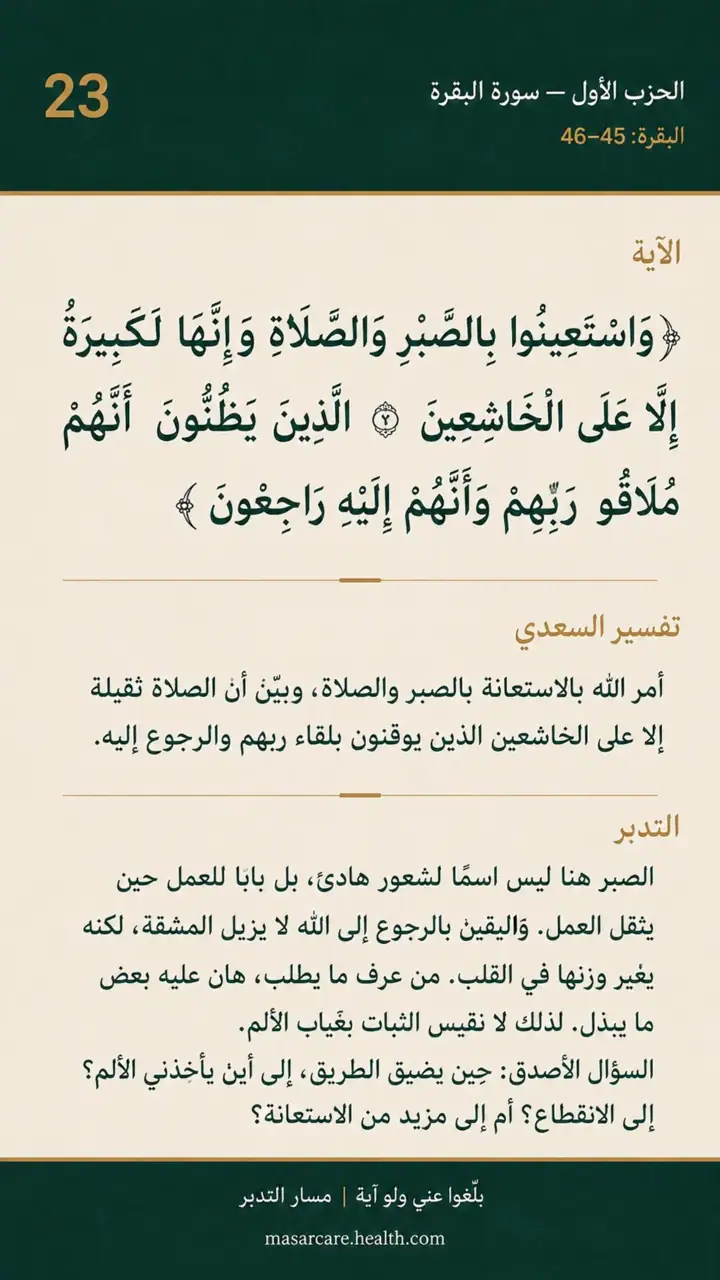 الحزب الأول — سورة البقرة
23
البقرة: 45–46
الآية
﴿وَاسْتَعِينُوا بِالصَّبْرِ وَالصَّلَاةِ وَإِنَّهَا لَكَبِيرَةٌ
إِلَّا عَلَى الْخَاشِعِينَ ۝٢ الَّذِينَ يَظُنُّونَ أَنَّهُمْ
مُلَاقُو رَبِّهِمْ وَأَنَّهُمْ إِلَيْهِ رَاجِعْونَ ﴾
تفسير السعدي
أمر الله بالاستعانة بالصبر والصلاة، وبيّنْ أن الصلاة ثقيلة
إلا على الخاشعين الذين يوقنون بلقاء ربهم والرجوع إليه.
التدبر
الصبر هنا ليس اسمًا لشعور هادئ، بل بابًا للعمل حين
يثقل العمل. وَاليقينْ بالرجوع إلى الله لا يزيل المشقة، لكنه
يغْير وزنها في القلب. من عرف ما يطلب، هان عليه بعض
ما يبذل. لذلك لا نقيس الثبات بغَياب الألم.
السؤال الأصدق: حِين يضيق الطريق، إلى أينْ يأخِذني الألم؟
إلى الانقطاع؟ أم إلى مزيد من الاستعانة؟
بلّغوا عني ولو آية | مسار التدبر
masarcare.health.com